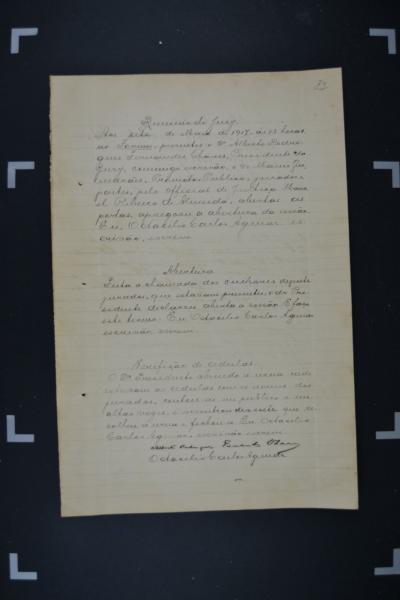 Reunião do Jury
Aos sete de Maio de 1917, ás 13 horas,
no Forum, presentes o Dr Alberto Rodri
gues Fernandes Chaves, Presidente do
Jury, commigo escrivão, o Dr
Promotor Publico, jurados e
partes, pelo official de Justiça Mano
el Ribeiro de Almeida, abertas as
portas, apregoou a abertura da sessão
Eu, Octacilio Carlos Aguiar es
crivão, escrevi
Abertura
Feita a chamada dos cidadãos
jurados, que estavam presentes, o Dr Pre
sidente declarou aberta a sessão. E faço
este termo. Eu Octacilio Carlos Aguiar
escrivão, escrevi
Verificação de cedulas.
O Dr Presidente abrindo a urna onde
estavam as cedulas com os nomes dos
jurados, contou-as em publico e em
altas vozes, e que re
colheu á urna e fechou-a. Eu, Octacilio
Carlos Aguiar, escrivão escrevi
Octacilio Carlos Aguiar